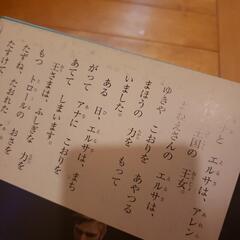 ナと エルサは、アレン
王国の 王女。
おねえさんの
ゆきや こおりを あやつる
まほうの 力を もって
いました。
ある 日、エルサは、まち
がって アナに こおりを
あてて しまいました
王さまは、ふしぎな 力を
もつ トロールの おさを
たずね、たおれた
たすけて